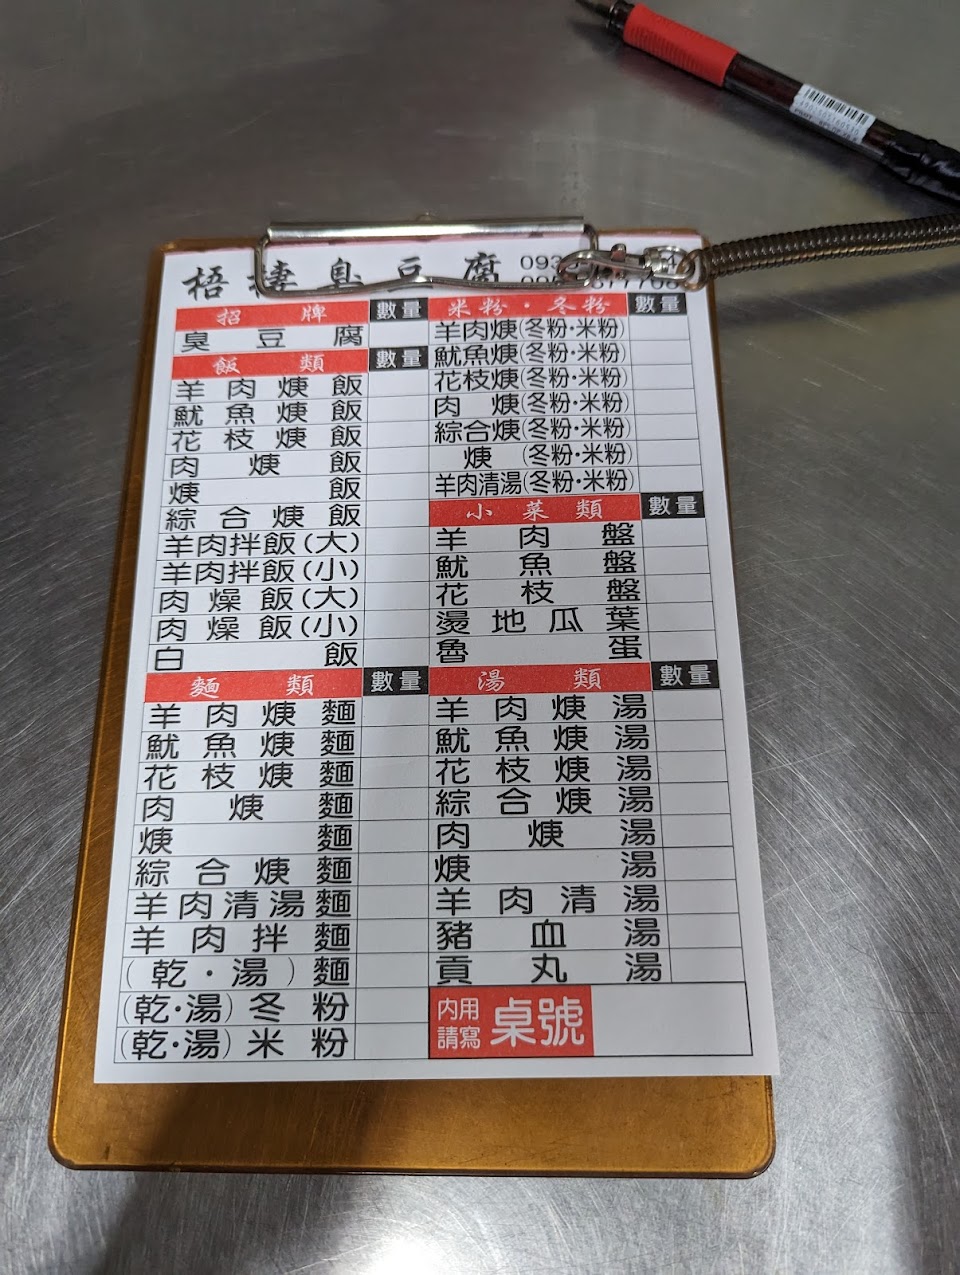 梧棲臭豆腐
招牌 數量
臭豆腐
飯類 數量
羊肉焿飯
魷魚焿飯
花枝焿飯
肉焿飯
焿飯
綜合焿飯
羊肉拌飯(大)
羊肉拌飯(小)
肉燥飯(大)
肉燥飯(小)
白飯
麵類 數量
羊肉焿麵
魷魚焿麵
花枝焿麵
肉焿麵
焿麵
綜合焿麵
羊肉清湯麵
羊肉拌麵
(乾·湯)麵
(乾·湯)冬粉
(乾·湯)米粉
米粉·冬粉 數量
羊肉焿(冬粉·米粉)
魷魚焿(冬粉·米粉)
花枝焿(冬粉·米粉)
肉焿(冬粉·米粉)
綜合焿(冬粉·米粉)
焿(冬粉·米粉)
羊肉清湯(冬粉·米粉)
小菜類 數量
羊肉盤
魷魚盤
花枝盤
燙地瓜葉
魯蛋
湯類 數量
羊肉焿湯
魷魚焿湯
花枝焿湯
綜合焿湯
肉焿湯
焿湯
羊肉清湯
豬血湯
貢丸湯
內用
請寫
桌號